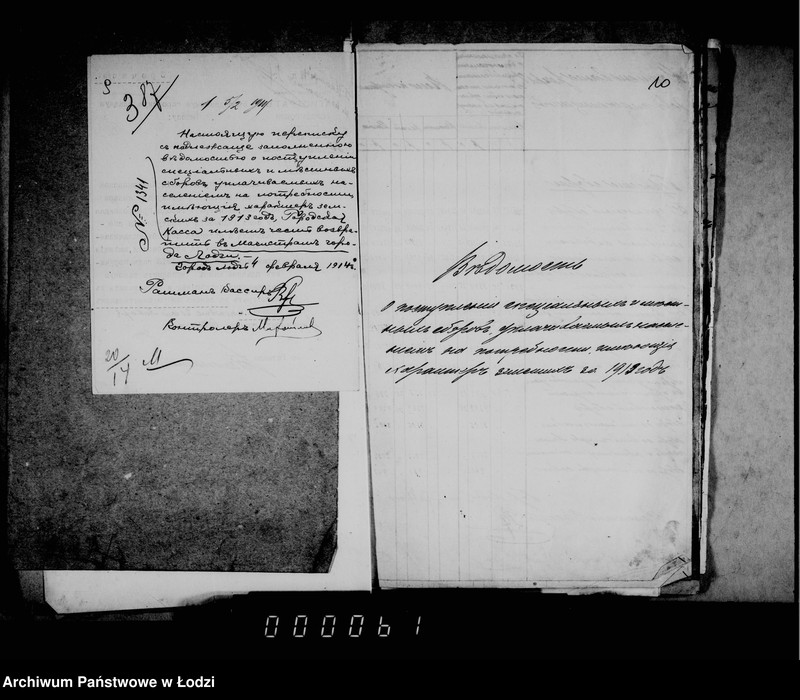 9
387
1 5/2 1914
№ 1341
Настоящую переписку
съ надлежаще заполненною
вѣдомостью о поступленіи
спеціальныхъ и мѣстныхъ
сборовъ уплачиваемыхъ на-
селеніемъ на потребности
имѣющія характеръ зем-
скихъ за 1913 годъ, Городская
Касса имѣетъ честь возвра-
тить въ Магистратъ горо-
да Лодзи.—
Городъ Лодзь 4 февраля 1914 г.
Ратманъ Кассиръ
Контролеръ
20/14 М
10
Вѣдомость
о поступленіи спеціальныхъ и мѣст-
ныхъ сборовъ, уплачиваемыхъ насе-
ніемъ на потребности, имѣющія
характеръ земскихъ за 1913 годъ
000061
Archiwum Państwowe w Łodzi